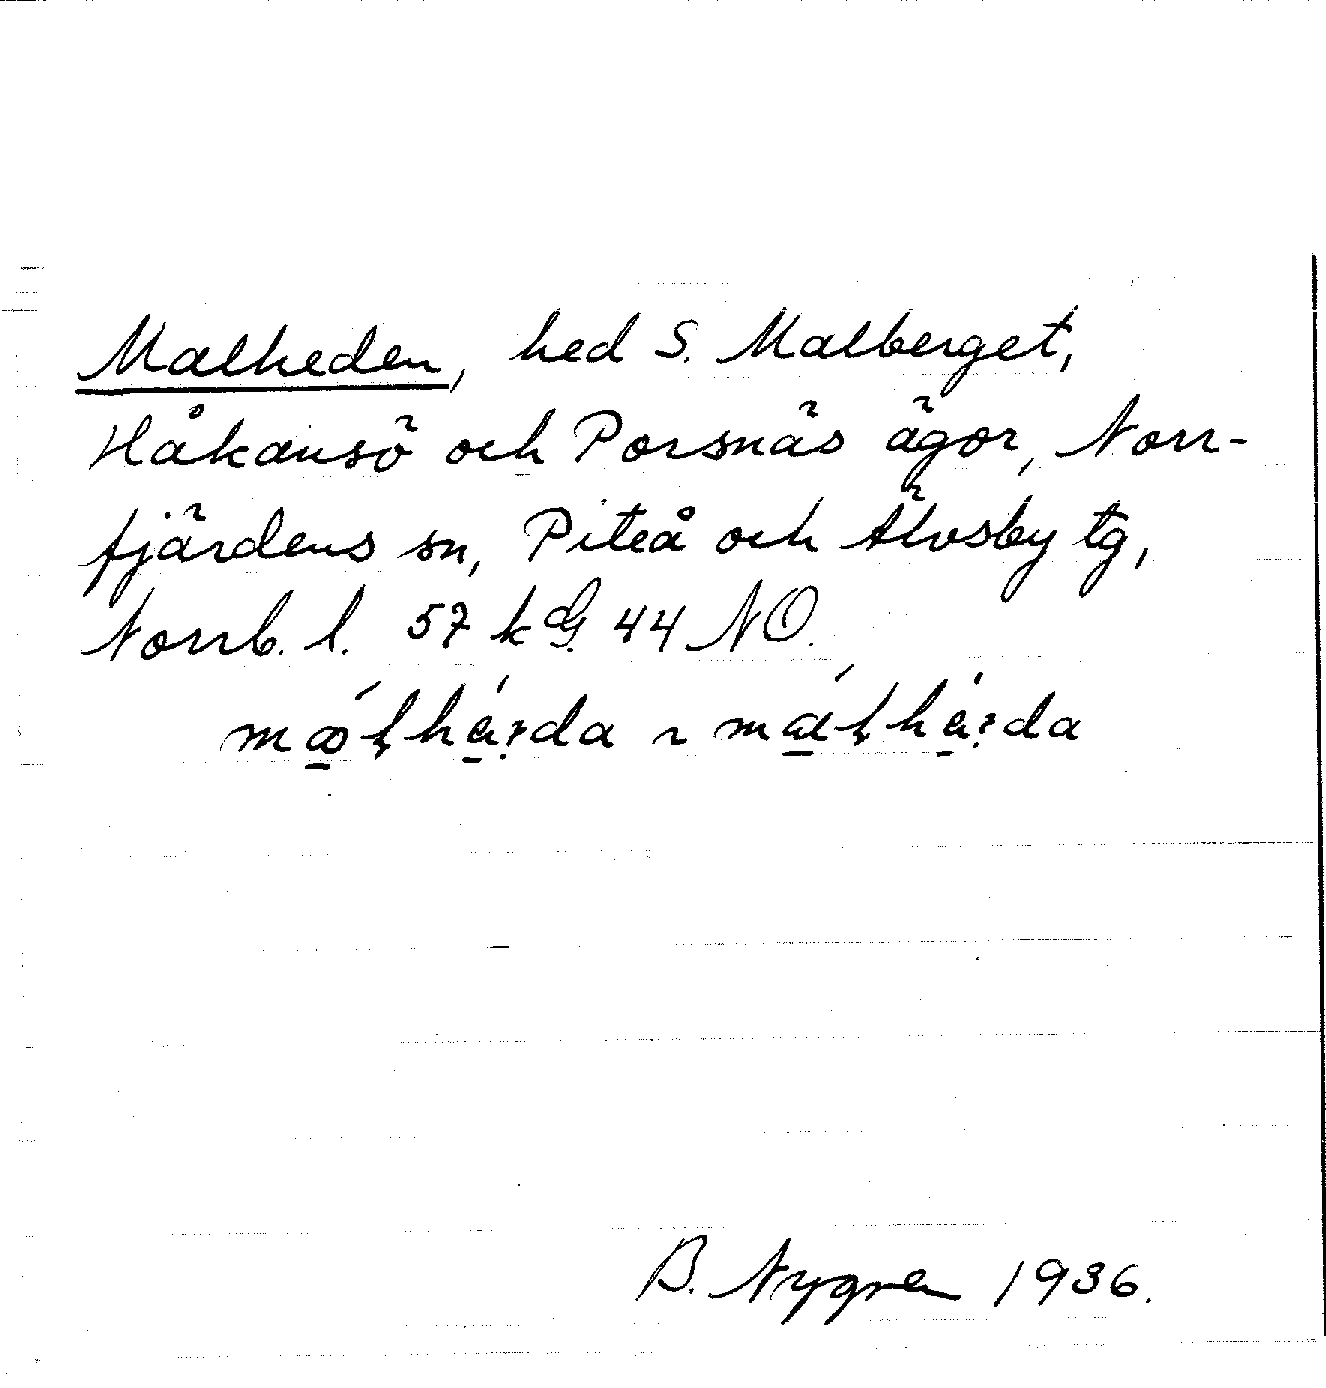 Malheden, hed S. Malberget,
Håkansö och Porsnäs ägor, Norr-
fjärdens sn, Piteå och Älvsby tg,
Norrb. l. 57 k G. 44 NO.
B. Nygren 1936.